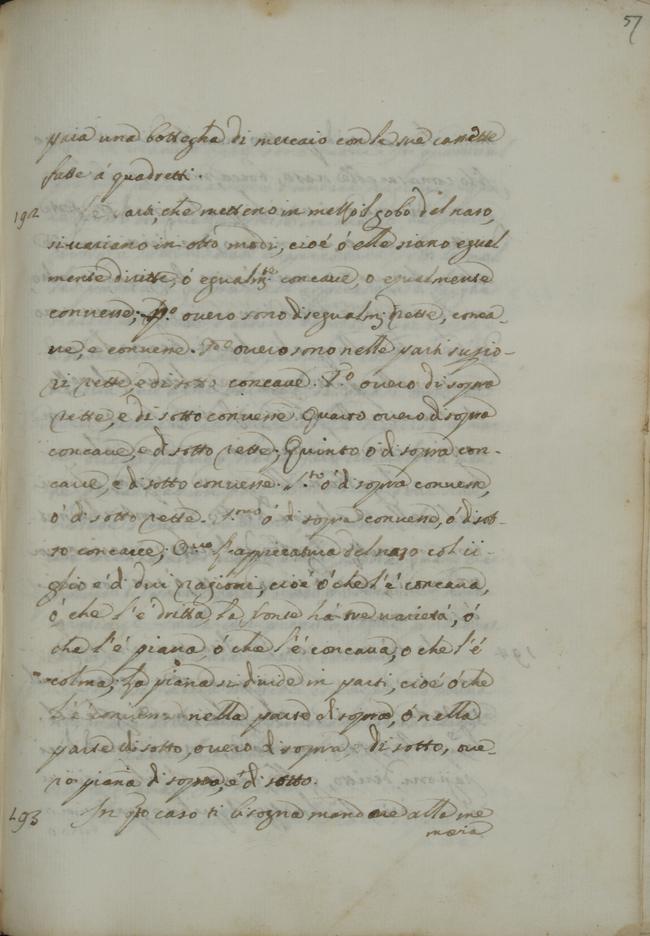 57
paia una bottegha di mercaio con le sue cassette
fatte á quadretti.
192 Le parti, che metteno in mezzo il gobo del naso,
si variano in otto modi, cioé ó elle siano egual
mente diritte, ó egualmte. concave, o egualmente
convesse; pº overo sono disegualmte rette, conca-
ve, e convesse. 2do overo sono nelle parti supio-
ri rette, e di sotto concave. 3º overo di sopra
rette, e di sotto convesse. Quarto overo di sopra
concave, e di sotto rette; Quinto ó di sopra con-
cave, e di sotto convesse. Sto ó di sopra convesse,
ó di sotto rette. 7mo ó di sopra convesse, ó di sot-
to concave; Ovo l'appicatura del naso col ci-
glio é di dui ragioni, cioé ó che l'é concava,
ó che l'é dritta, La fronte há tre varietá, ó
che l'é piana ó che l'é concava, o che l'é
colma; La piana si divide in parti, cioé ó che
l'é convessa nella parte di sopra, ó nella
parte di sotto, overo di sopra e di sotto, ove-
ro piana di sopra, é di sotto.
193 In qto caso ti bisogna mandare alla me
moria